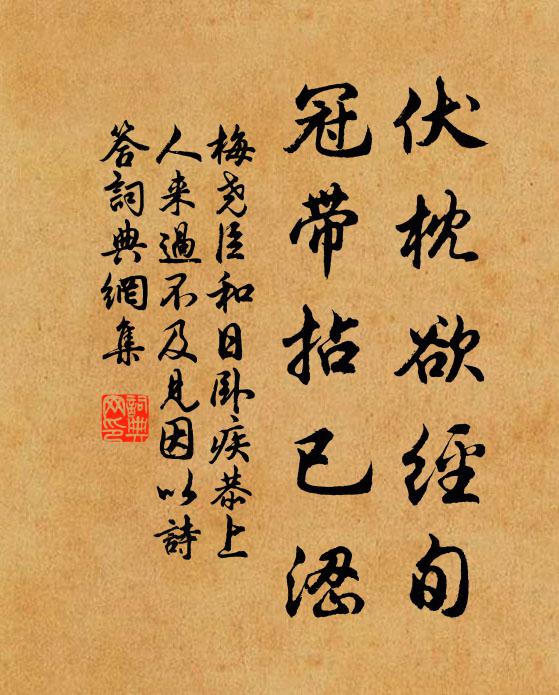 伏枕欲經旬
冠帶拈已涩
梅尧臣和日卧疾恭上
人来過不及見因以詩
答詞典網集
詞典
网印